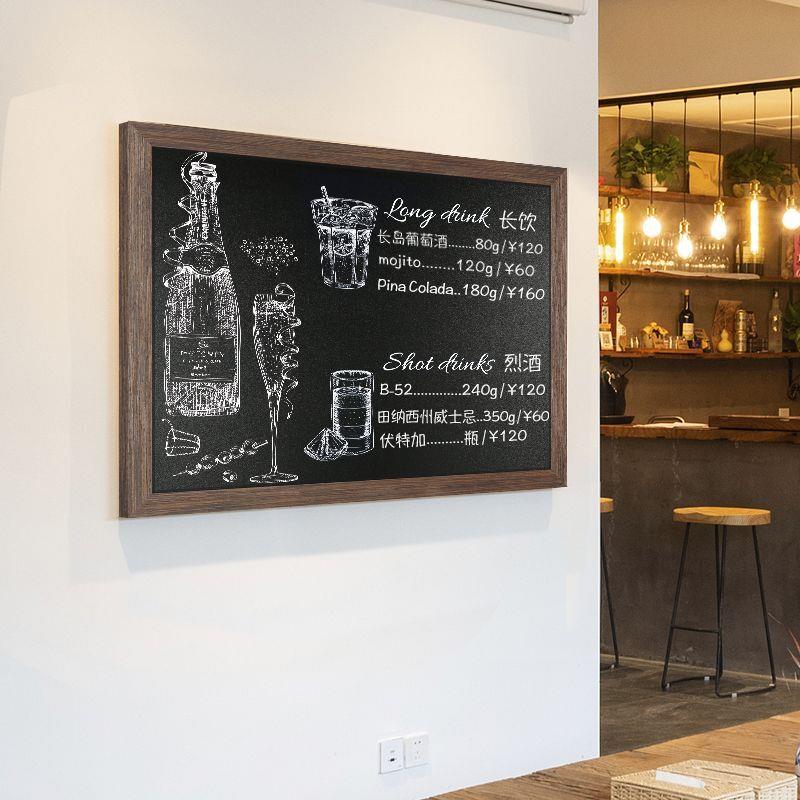 Long drink 长饮
长岛葡萄酒........80g/¥120
mojito.........120g/¥60
Pina Colada..180g/¥160
Shot drinks 烈酒
B-52.............240g/¥120
田纳西州威士忌..350g/¥60
伏特加..........瓶/¥120